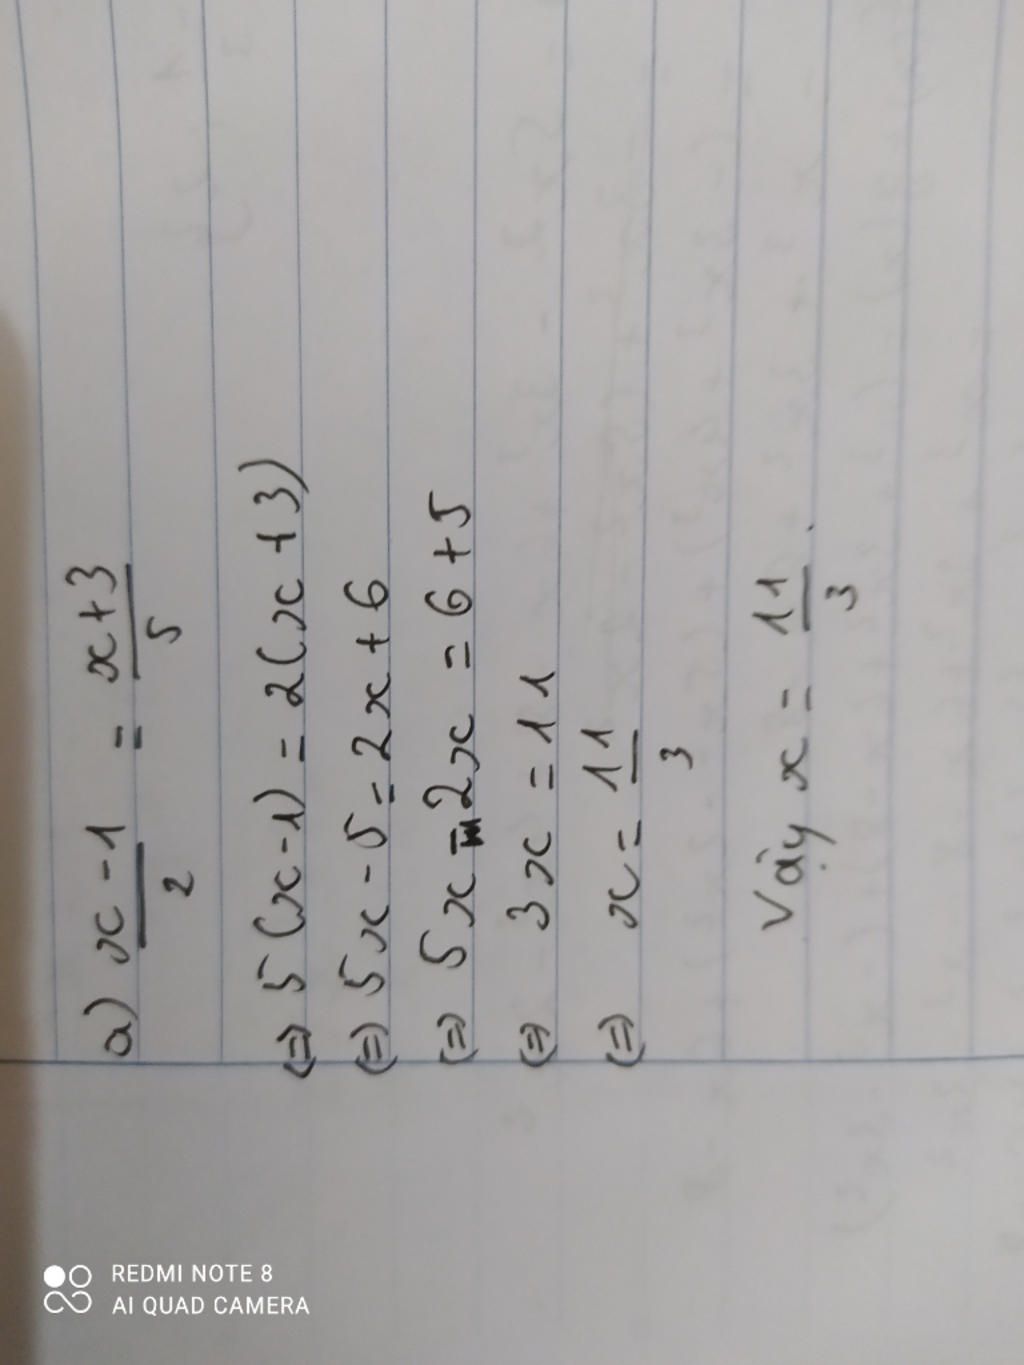 a) x-1/2 = x+3/5
(=) 5(x-1) = 2(x+3)
(=) 5x-5=2x+6
(=) 5x-2x=6+5
(=) 3x=11
(=) x=11/3
Vậy x=11/3.
REDMI NOTE 8
AI QUAD CAMERA